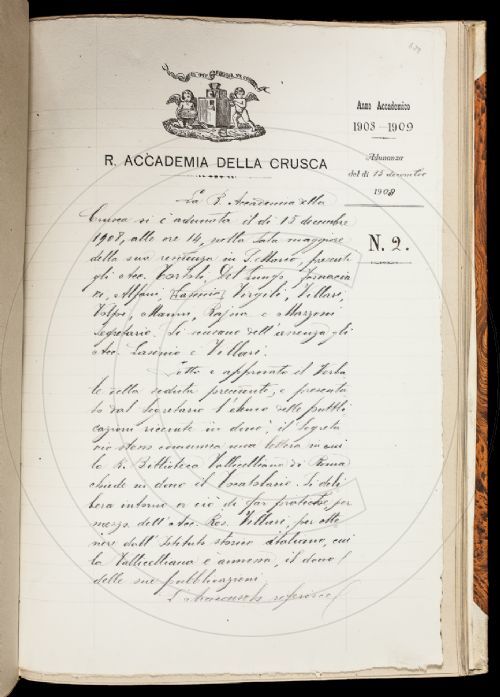 Anno Accademico
1908-1909
Adunanza
del dì 15 decembre
1908
N. 2.
R. ACCADEMIA DELLA CRUSCA
La R. Accademia della
Crusca si è adunata il dì 15 decembre
1908, alle ore 14, nella sala maggiore
della sua residenza in S. Marco, presenti
gli Acc. Tortoli, Del Lungo, Fornacia
ri, Alfani, Vergoli, Villari,
Volpi, Manni, Rajna e Mazzoni
Segretario. Si scusano dell'assenza gli
Acc. Lasinio e Villari.
Letto e approvato il Verba
le della seduta precedente, e presenta
to dal Segretario l'elenco delle pubbli
cazioni ricevute in dono; il Segreta
rio stesso comunica una lettera in cui
la R. Biblioteca Vallicelliana di Roma
chiede in dono il Vocabolario. Si deli
bera intorno a ciò di far pratiche, per
mezzo dell'Acc. Res. Villari, per otte
nere dall'Istituto storico italiano, cui
la Vallicelliana è annessa, il dono
delle sue pubblicazioni.
L'Arciconsolo